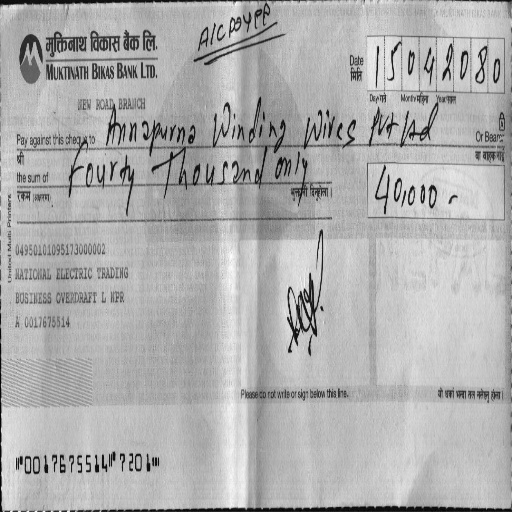 A/C PAYEE
मुक्तिनाथ विकास बैंक लि.
MUKTINATH BIKAS BANK LTD.
Date
मिति
15042080
Day/गते Month/महिना Year/साल
NEW ROAD BRANCH
Pay against this cheque to Annapurna Winding Wires Pvt Ltd Or Bearer
श्री
the sum of Fourty Thousand only
रकम (अक्षरमा)
40,000.-
United Multi Printers
04950101095173000002
NATIONAL ELECTRIC TRADING
BUSINESS OVERDRAFT L NPR
A 0017675514
Please do not write or sign below this line.
⑈0017675514⑈7201⑈